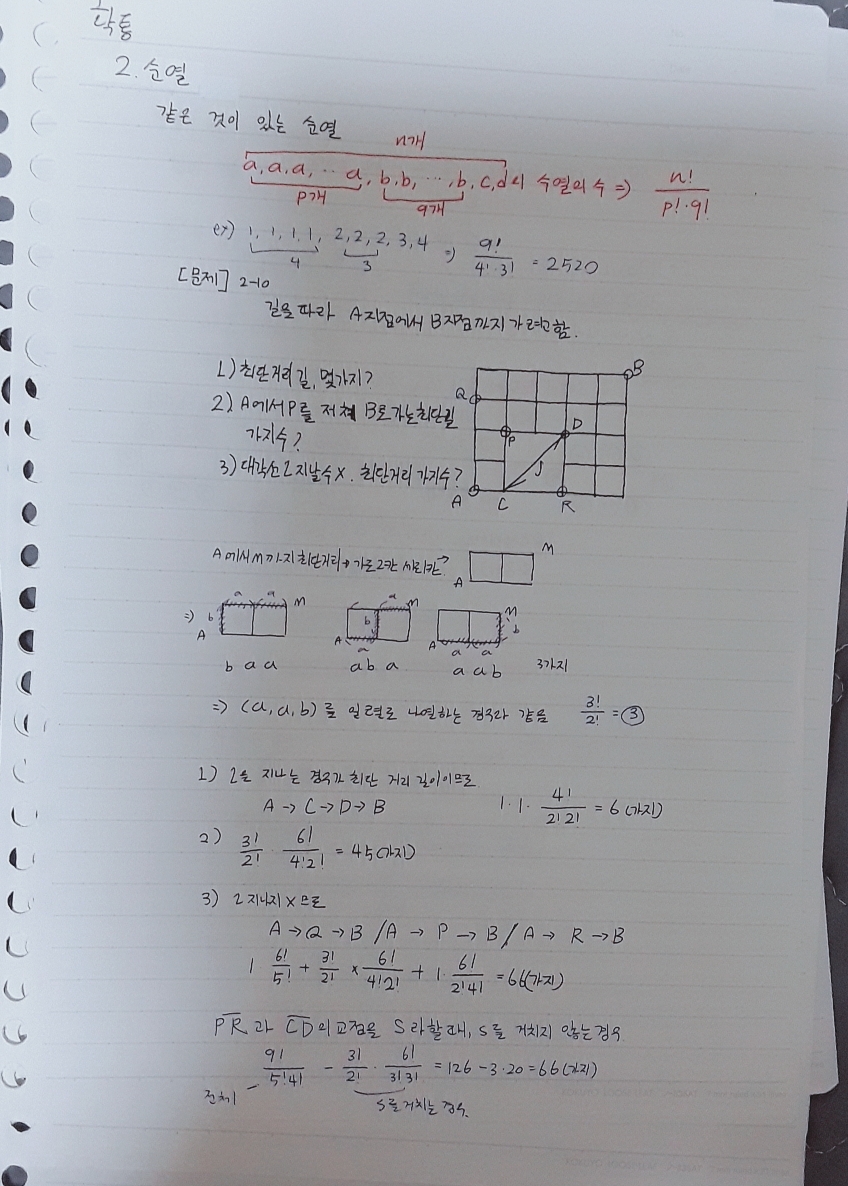 확통
2. 순열
같은 것이 있는 순열
n개
a, a, a, … a, b, b, …, b, c, d의 수열의 수 ⇒ n! / p!·q!
p개 q개
ex) 1, 1, 1, 1, 2, 2, 2, 3, 4 ⇒ 9! / 4!·3! = 2520
4 3
[문제] 2-10
길을 따라 A지점에서 B지점까지 가려고 함.
1) 최단거리 길, 몇가지?
2) A에서 P를 거쳐 B로 가는 최단길
가지수?
3) 대각선 l 지날수 X. 최단거리 가지수?
B
Q
P D
l
A C R
A에서 M까지 최단거리 → 가로2칸 세로1칸 →
M
A
⇒ b a a M
A
a M
b
A a
M
b
A a a
b a a a b a a a b 3가지
⇒ (a, a, b)를 일렬로 나열하는 경우와 같음 3! / 2! = 3
1) l을 지나는 경우가 최단 거리 길이이므로
A → C → D → B 1·1· 4! / 2! 2! = 6 (가지)
2) 3! / 2! · 6! / 4! 2! = 45 (가지)
3) l 지나지 X 므로
A → Q → B / A → P → B / A → R → B
1 6! / 5! + 3! / 2! × 6! / 4! 2! + 1· 6! / 2! 4! = 66 (가지)
PR과 CD의 교점을 S라 할 때, S를 거치지 않는 경우
9! / 5! 4! - 3! / 2! · 6! / 3! 3! = 126 - 3·20 = 66 (가지)
전체 S를 거치는 경우